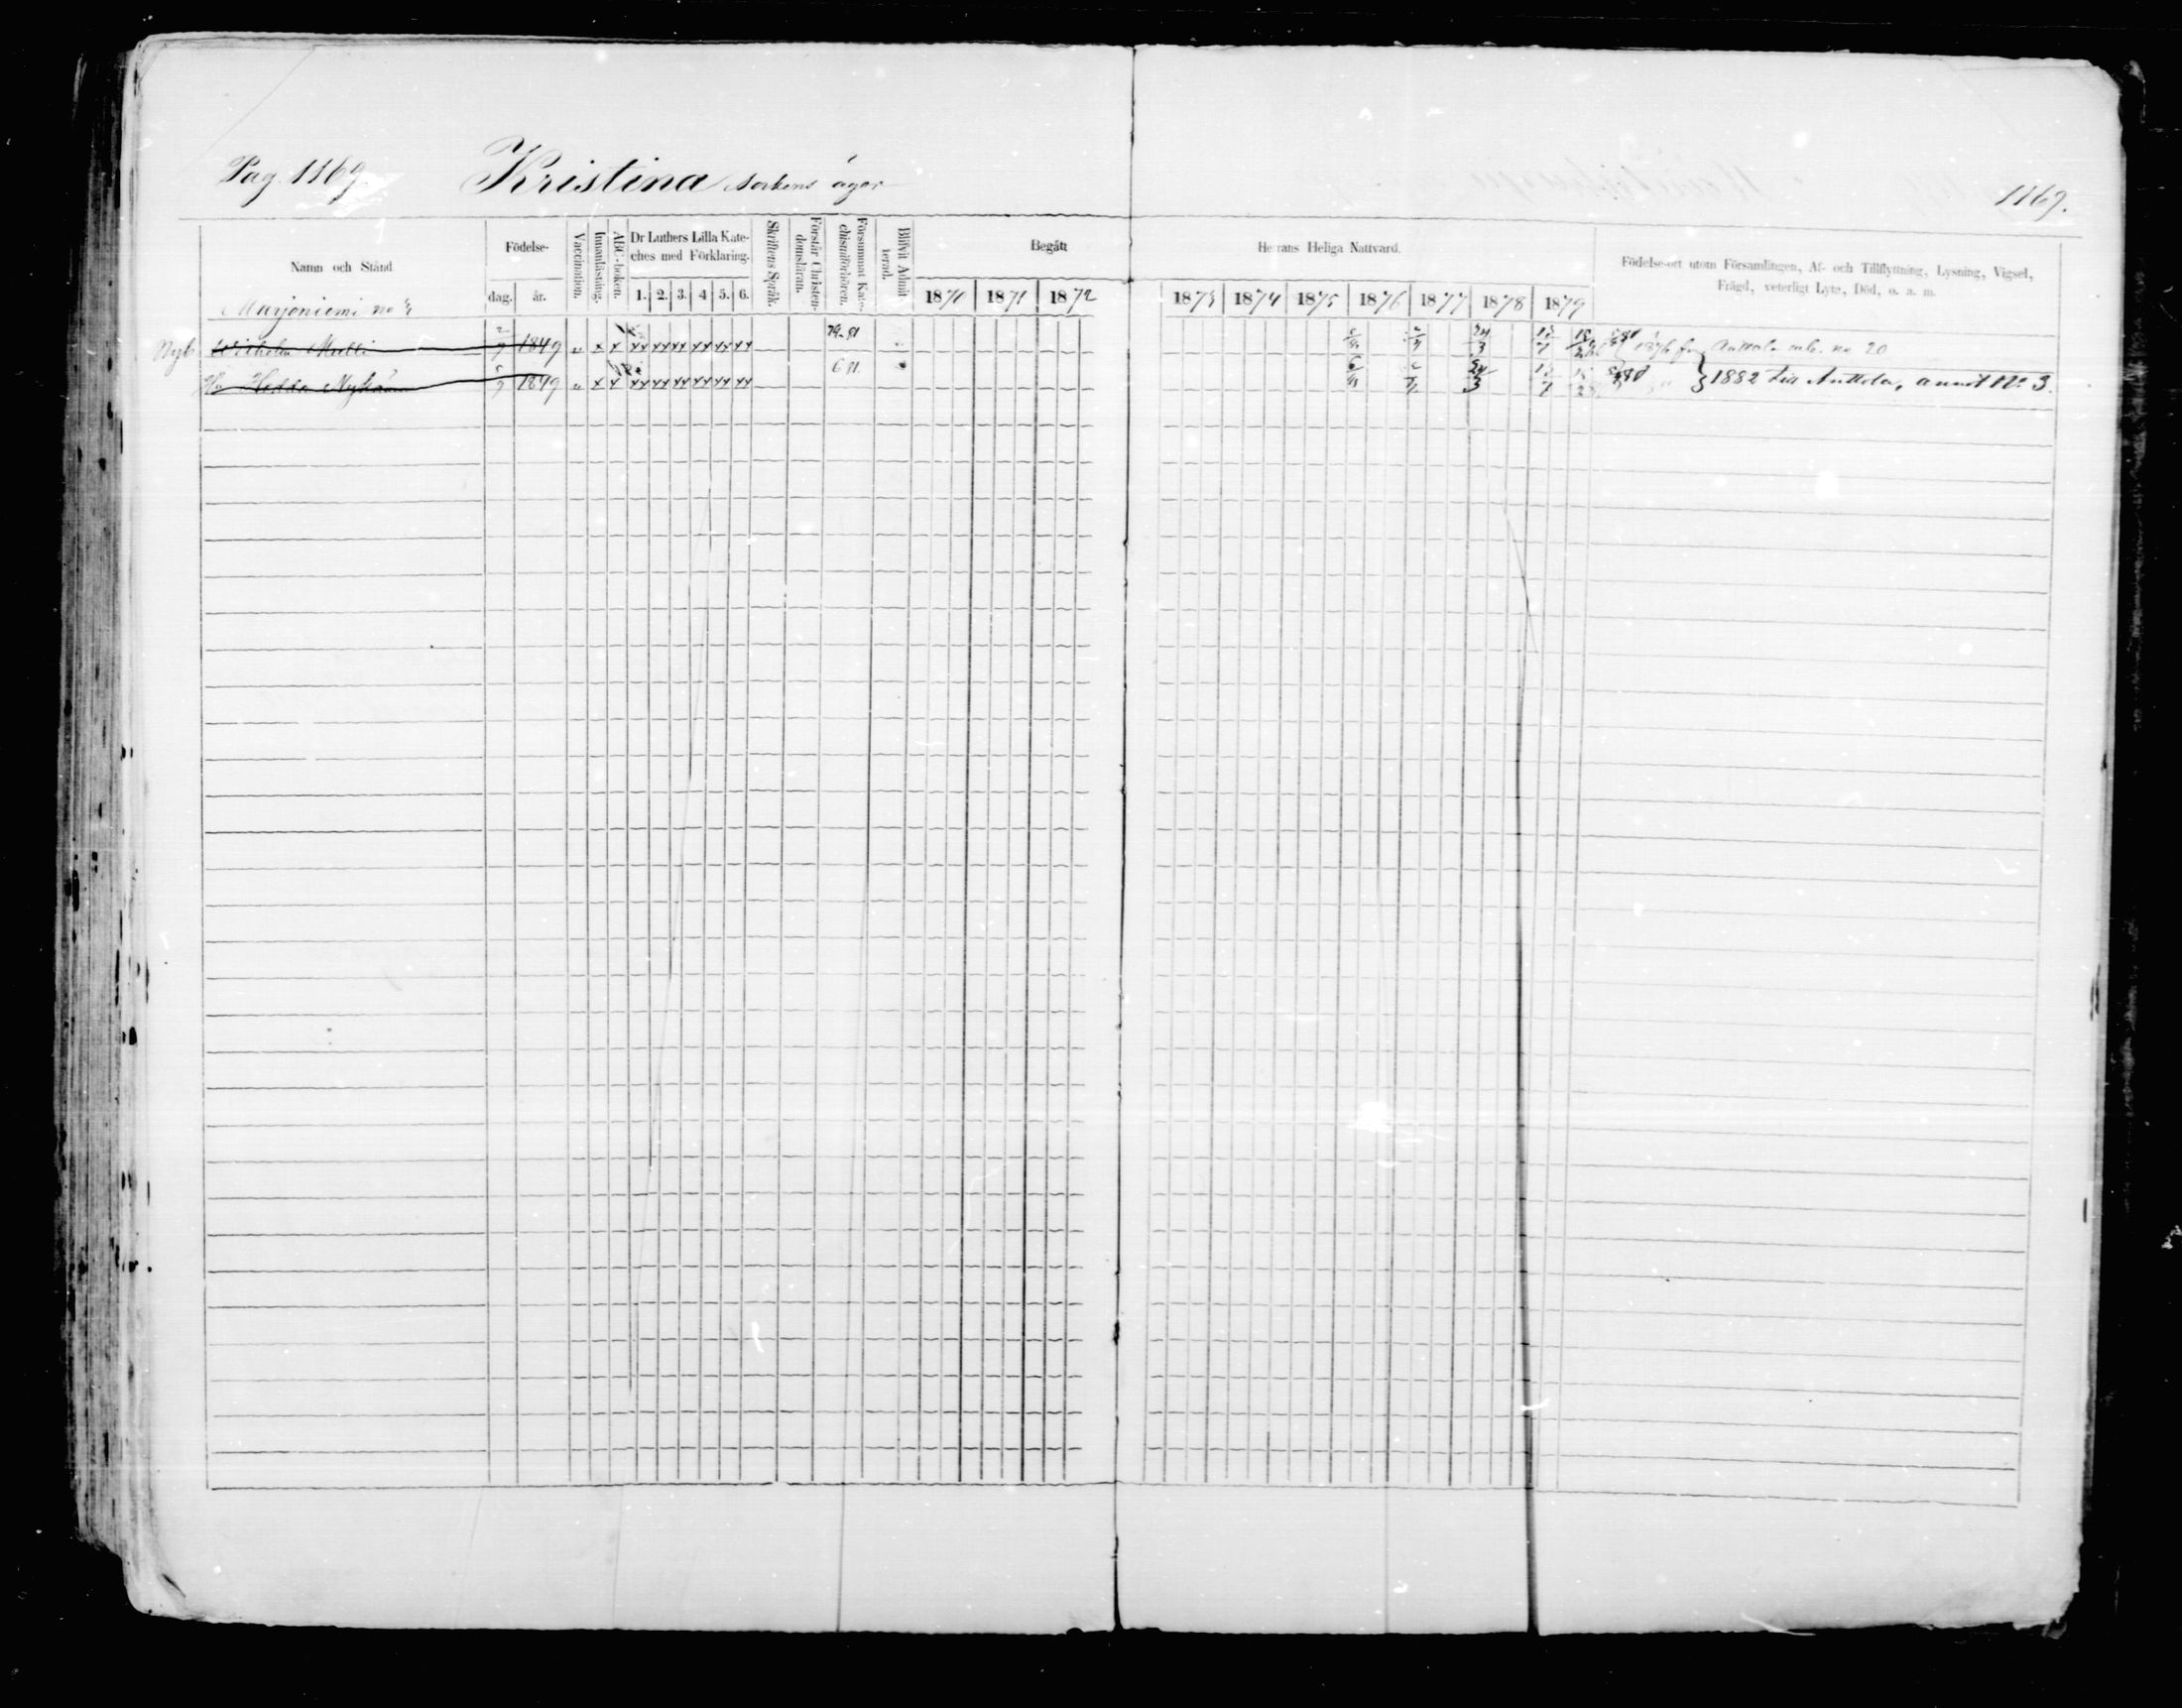 Pag. 1169. Kristina sockens ägor
1169.
Namn och Stånd
Födelse-
dag. år.
Vaccination.
Innanläsning.
ABC-boken.
Dr Luthers Lilla Kate-
ches med Förklaring.
1. 2. 3. 4 5. 6.
Skriftens Språk.
Förstår Christen-
domsläran.
Försummat Kate-
chismiförhören.
Blifvit Admit
terad.
Begått Herrans Heliga Nattvard.
1870 1871 1872 1873 1874 1875 1876 1877 1878 1879
Födelse-ort utom Församlingen, Af- och Tillflyttning, Lysning, Vigsel,
Frägd, veterligt Lyte, Död, o. a. m.
Marjoniemi
Nyb. Wilhelm Multi 1849 79-81 24/3 1876 fr. Anttola no 20
Hu Hedda 1849 81 24/3 } 1882 till Anttola, annot No 3.